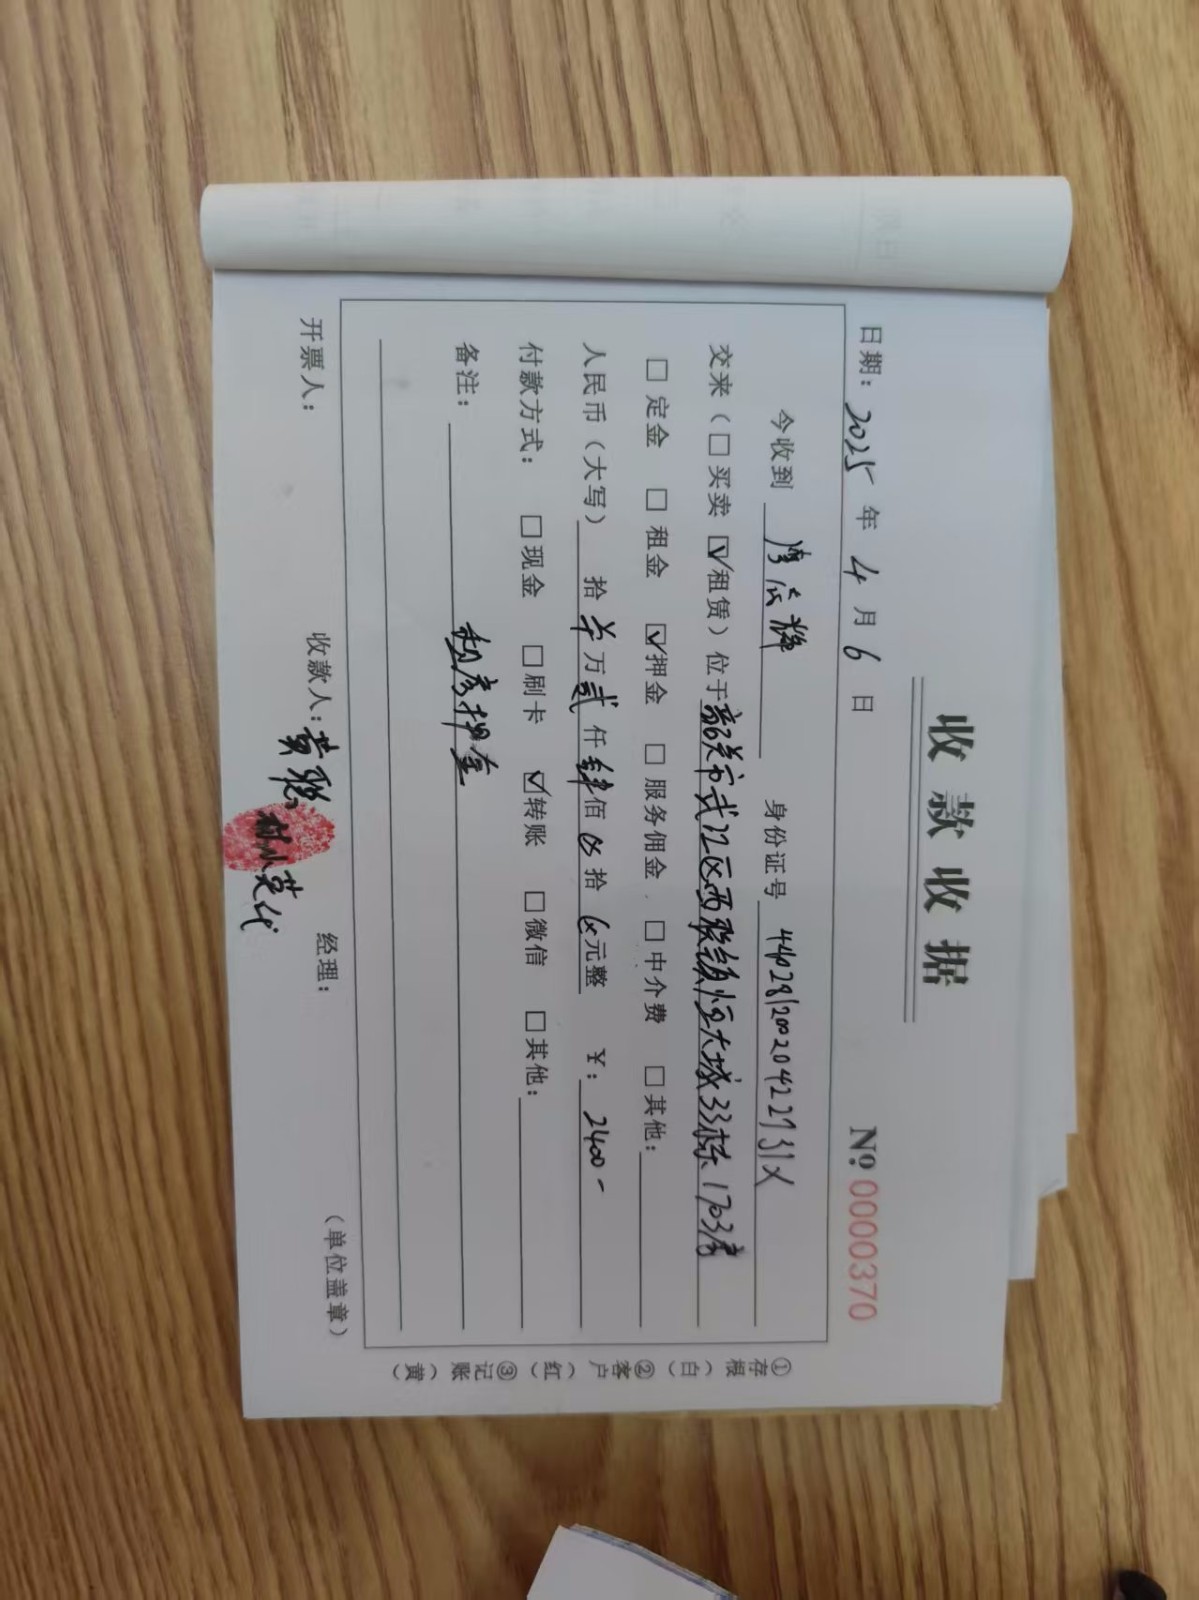 收款收据
日期：2025年4月6日 №0000370
今收到 身份证号 44028120020422731X
交来（□买卖 ☑租赁）位于韶关市武江区西联镇恒大城33栋1703房
□定金 □租金 ☑押金 □服务佣金 □中介费 □其他：
人民币（大写） 拾 万贰仟肆佰 拾 元整 ￥：2400-
付款方式： □现金 □刷卡 ☑转账 □微信 □其他：
备注： 租房押金
开票人： 收款人：黄 经理： （单位盖章）
①存根（白）②客户（红）③记账（黄）